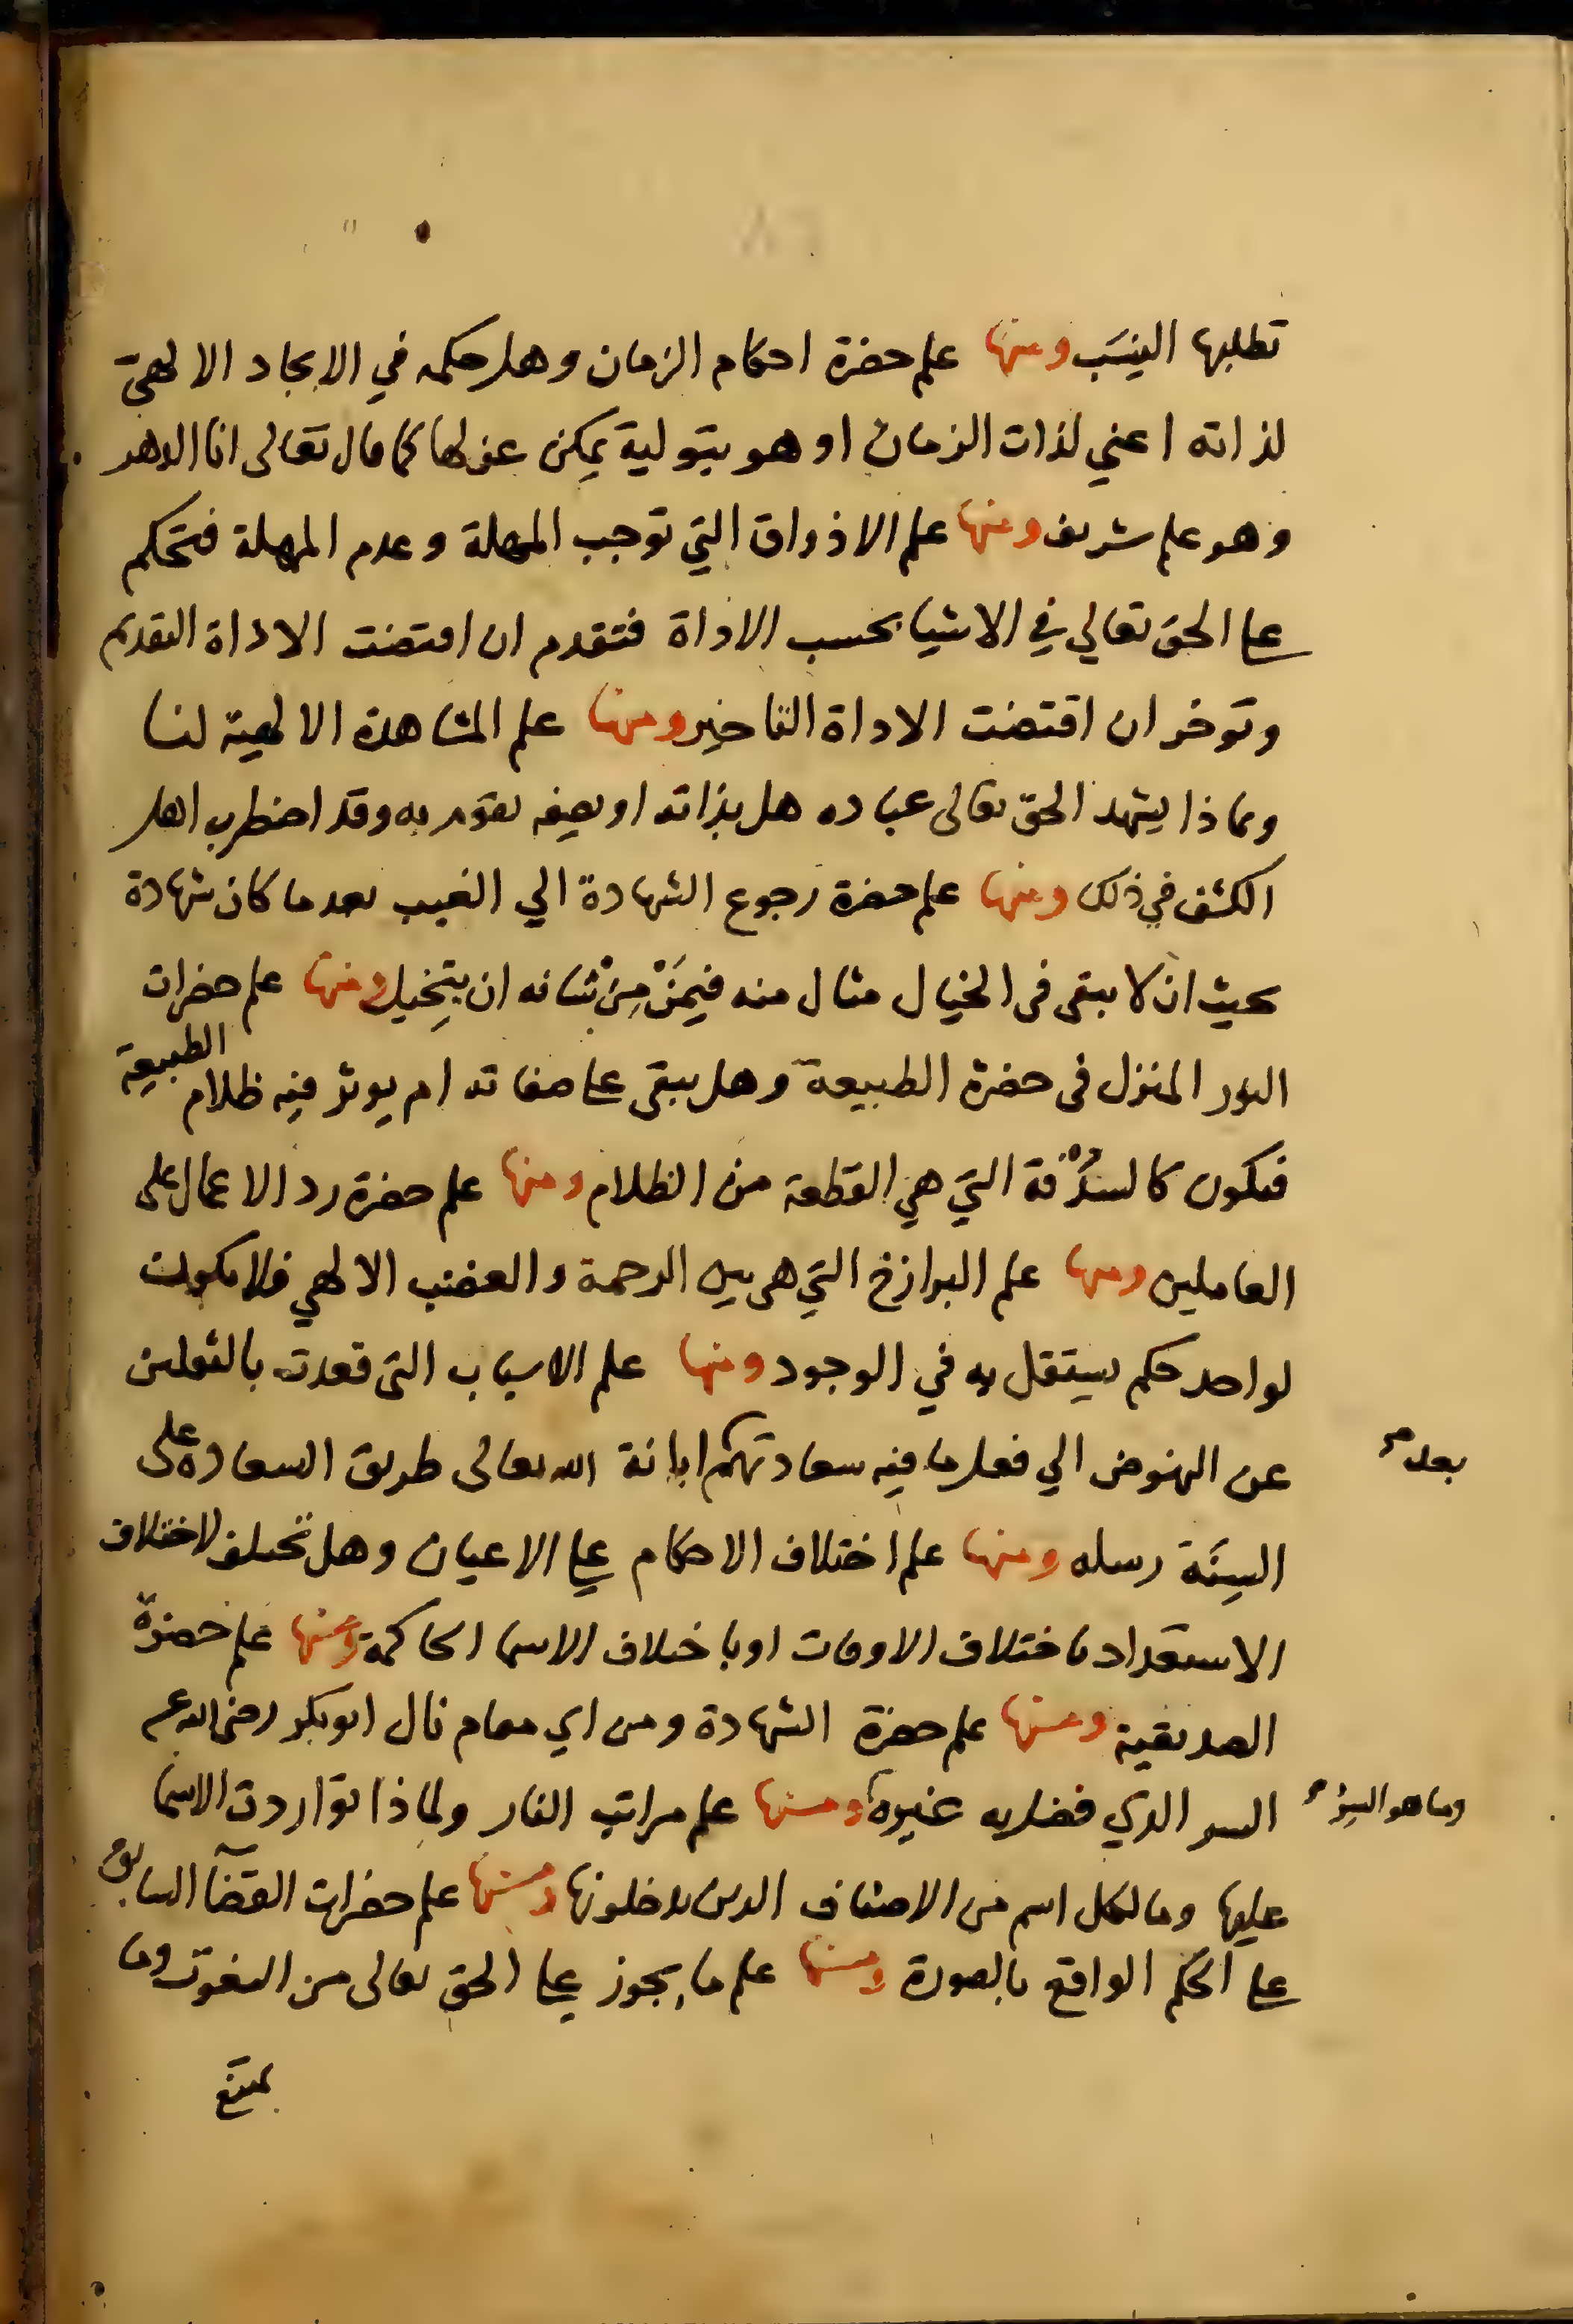 تطلبها النِسَب ومنها علم حضرة احكام الزمان وهل حكمه في الايجاد الالهيّ
لذاته اعني لذات الزمان او هو بتولية يمكن عزلها كما قال تعالى انا الدهر
وهو علم شريف ومنها علم الاذواق التي توجب المهلة وعدم المهلة فتحكم
على الحق تعالي في الاشيا بحسب الاداة فتقدم ان اقتضت الاداة التقديم
وتوخر ان اقتضت الاداة التاخير ومنها علم المشاهدة الالهية لنا
وبماذا يشهد الحق تعالى عباده هل بذاته او بصفه تقوم به وقد اضطرب اهل
الكشف في ذلك ومنها علم حضرة رجوع الشهادة الي الغيب بعد ما كان شهادة
بحيث ان لا يبقى في الخيال مثال منه فيمَنْ مِنْ شانه ان يتخيل ومنها علم حضرات
النور المنزل في حضرة الطبيعة وهل يبقى على صفاته ام يوثر فيه ظلام الطبيعة
فيكون كالسُدْفة التي هي القطعة من الظلام ومنها علم حضرة رد الاعمال على
العاملين ومنها علم البوازخ التي هي بين الرحمة والغضب الالهي فلا يكون
لواحد حكم يستقل به في الوجود ومنها علم الاسباب التي قعدت بالثقلين
عن النهوض الي فعل ما فيه سعادتهم ابانة الله تعالى طريق السعادة على
بعد
السِنَة رسله ومنها علم اختلاف الاحكام على الاعيان وهل تختلف لاختلاف
الاستعداد باختلاف الاوقات او باختلاف الاسما الحاكمة ومنها علم حضرة
الصديقية ومنها علم حضرة الشهادة ومن اي مقام نال ابو بكر رضي الله عنه
السر الذي فضل به غيره ومنها علم مراتب النار ولماذا تواردت الاسما
وما هو السرّ
عليها وما لكل اسم من الاصناف الذين يدخلونها ومنها علم حضرات القضآ السابق
على الحكم الواقع بالصورة ومنها علم ما يجوز على الحق تعالى من النعوت وما
يمتنع